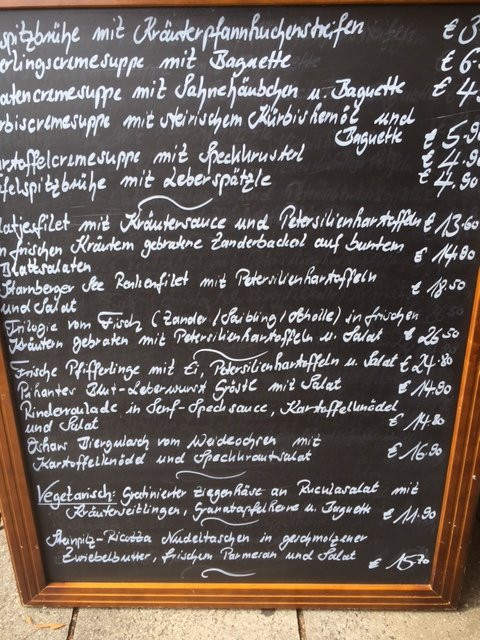 spitzbrühe mit Kräuterpfannkuchenstreifen € 3
erlingscremesuppe mit Baguette € 6
atencremesuppe mit Sahnehäubchen u. Baguette € 4
rbiscremesuppe mit steirischem Kürbiskernöl und
Baguette € 5.90
artoffelcremesuppe mit Speckkrusterl € 4.90
felspitzbrühe mit Leberspätzle € 4.90
atjesfilet mit Kräutersauce und Petersilienkartoffeln € 13.60
n frischen Kräutern gebratene Zanderbackerl auf buntem € 14.80
Blattsalaten
Starnberger See Renkenfilet mit Petersilienkartoffeln € 18.50
und Salat
Trilogie vom Fisch (Zander/Saibling/Scholle) in frischen
Kräutern gebraten mit Petersilienkartoffeln u. Salat € 26.50
Frische Pfifferlinge mit Ei, Petersilienkartoffeln u. Salat € 24.80
Pikantes Blut-Leberwurst Gröstl mit Salat € 14.90
Rinderroulade in Senf-Specksauce, Kartoffelknödel
und Salat € 14.80
Biergulasch vom Weideochsen mit
Kartoffelknödel und Speckkrautsalat € 16.90
Vegetarisch: Gratinierter Ziegenkäse an Ruculasalat mit
Kräuterseitlingen, Granatapfelkerne u. Baguette € 11.90
Steinpilz-Ricotta Nudeltaschen in geschmolzener
Zwiebelbutter, frischem Parmesan und Salat € 15.70